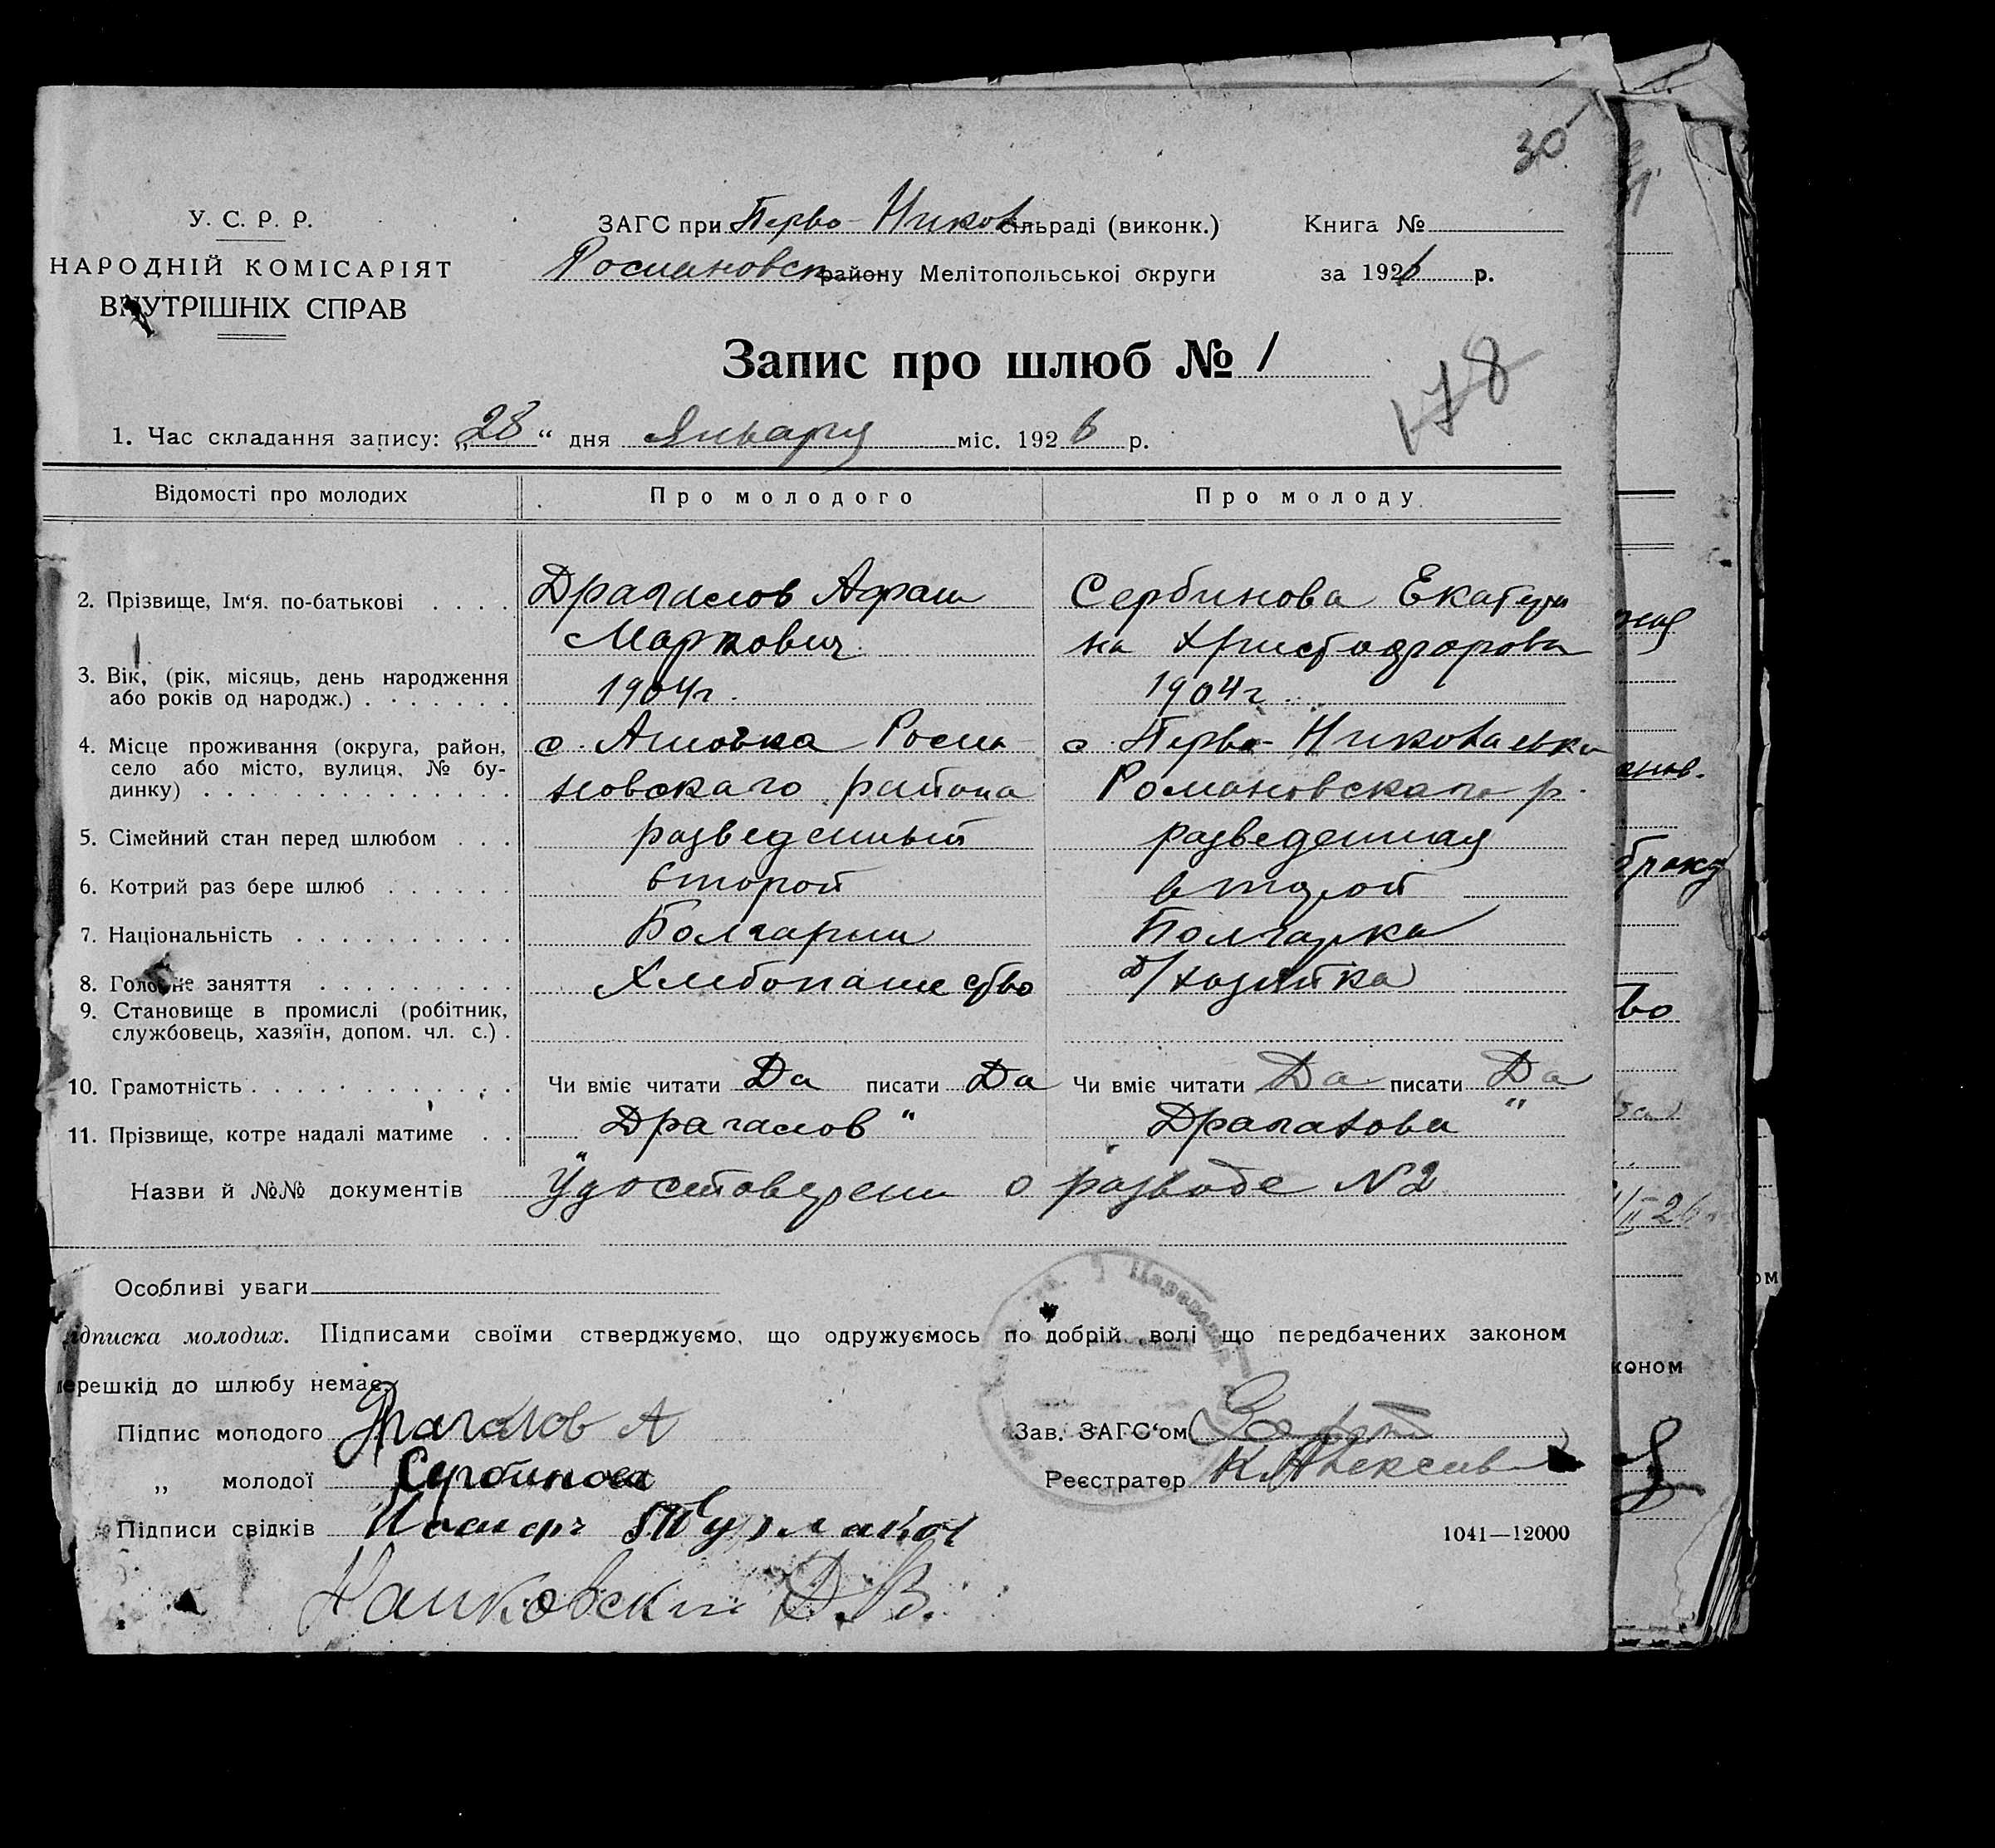 30
У. С. Р. Р.
НАРОДНІЙ КОМІСАРІЯТ
ВНУТРІШНІХ СПРАВ
ЗАГС при Перво-Никол сільраді (виконк.)
Романовск району Мелітопольськоі округи
Книга №
за 1926 р.
Запис про шлюб № 1
178
1. Час складання запису: „28“ дня Января міс. 1926 р.
Відомості про молодих Про молодого Про молоду
2. Прізвище, Ім‘я. по-батькові Драгалов Сербинова Екатери
Маркович на
3. Вік, (рік, місяць, день народження
або років од народж.) 1904г. 1904г.
4. Місце проживання (округа, район, с. Рома с. Перво-Николаевка
село або місто, вулиця, № бу-
динку) новскаго района Романовскаго р.
5. Сімейний стан перед шлюбом разведенный разведенная
6. Котрий раз бере шлюб второй второй
7. Національність Болгарин Болгарка
8. Головне заняття Хлебопашество д/хозяйка
9. Становище в промислі (робітник,
службовець, хазяїн, допом. чл. с.)
10. Грамотність Чи вміє читати Да писати Да Чи вміє читати Да писати Да
11. Прізвище, котре надалі матиме Драгалов" Драгалова"
Назви й №№ документів Удостоверени о разводе N2
Особливі уваги
ідписка молодих. Підписами своїми стверджуємо, що одружуємось по добрій волі що передбачених законом
ерешкід до шлюбу немає.
Підпис молодого Драгалов А
„ молодої Сербинова
Зав. ЗАГС‘ом
Реєстратор
Підписи свідків
Д.В.
1041—12000